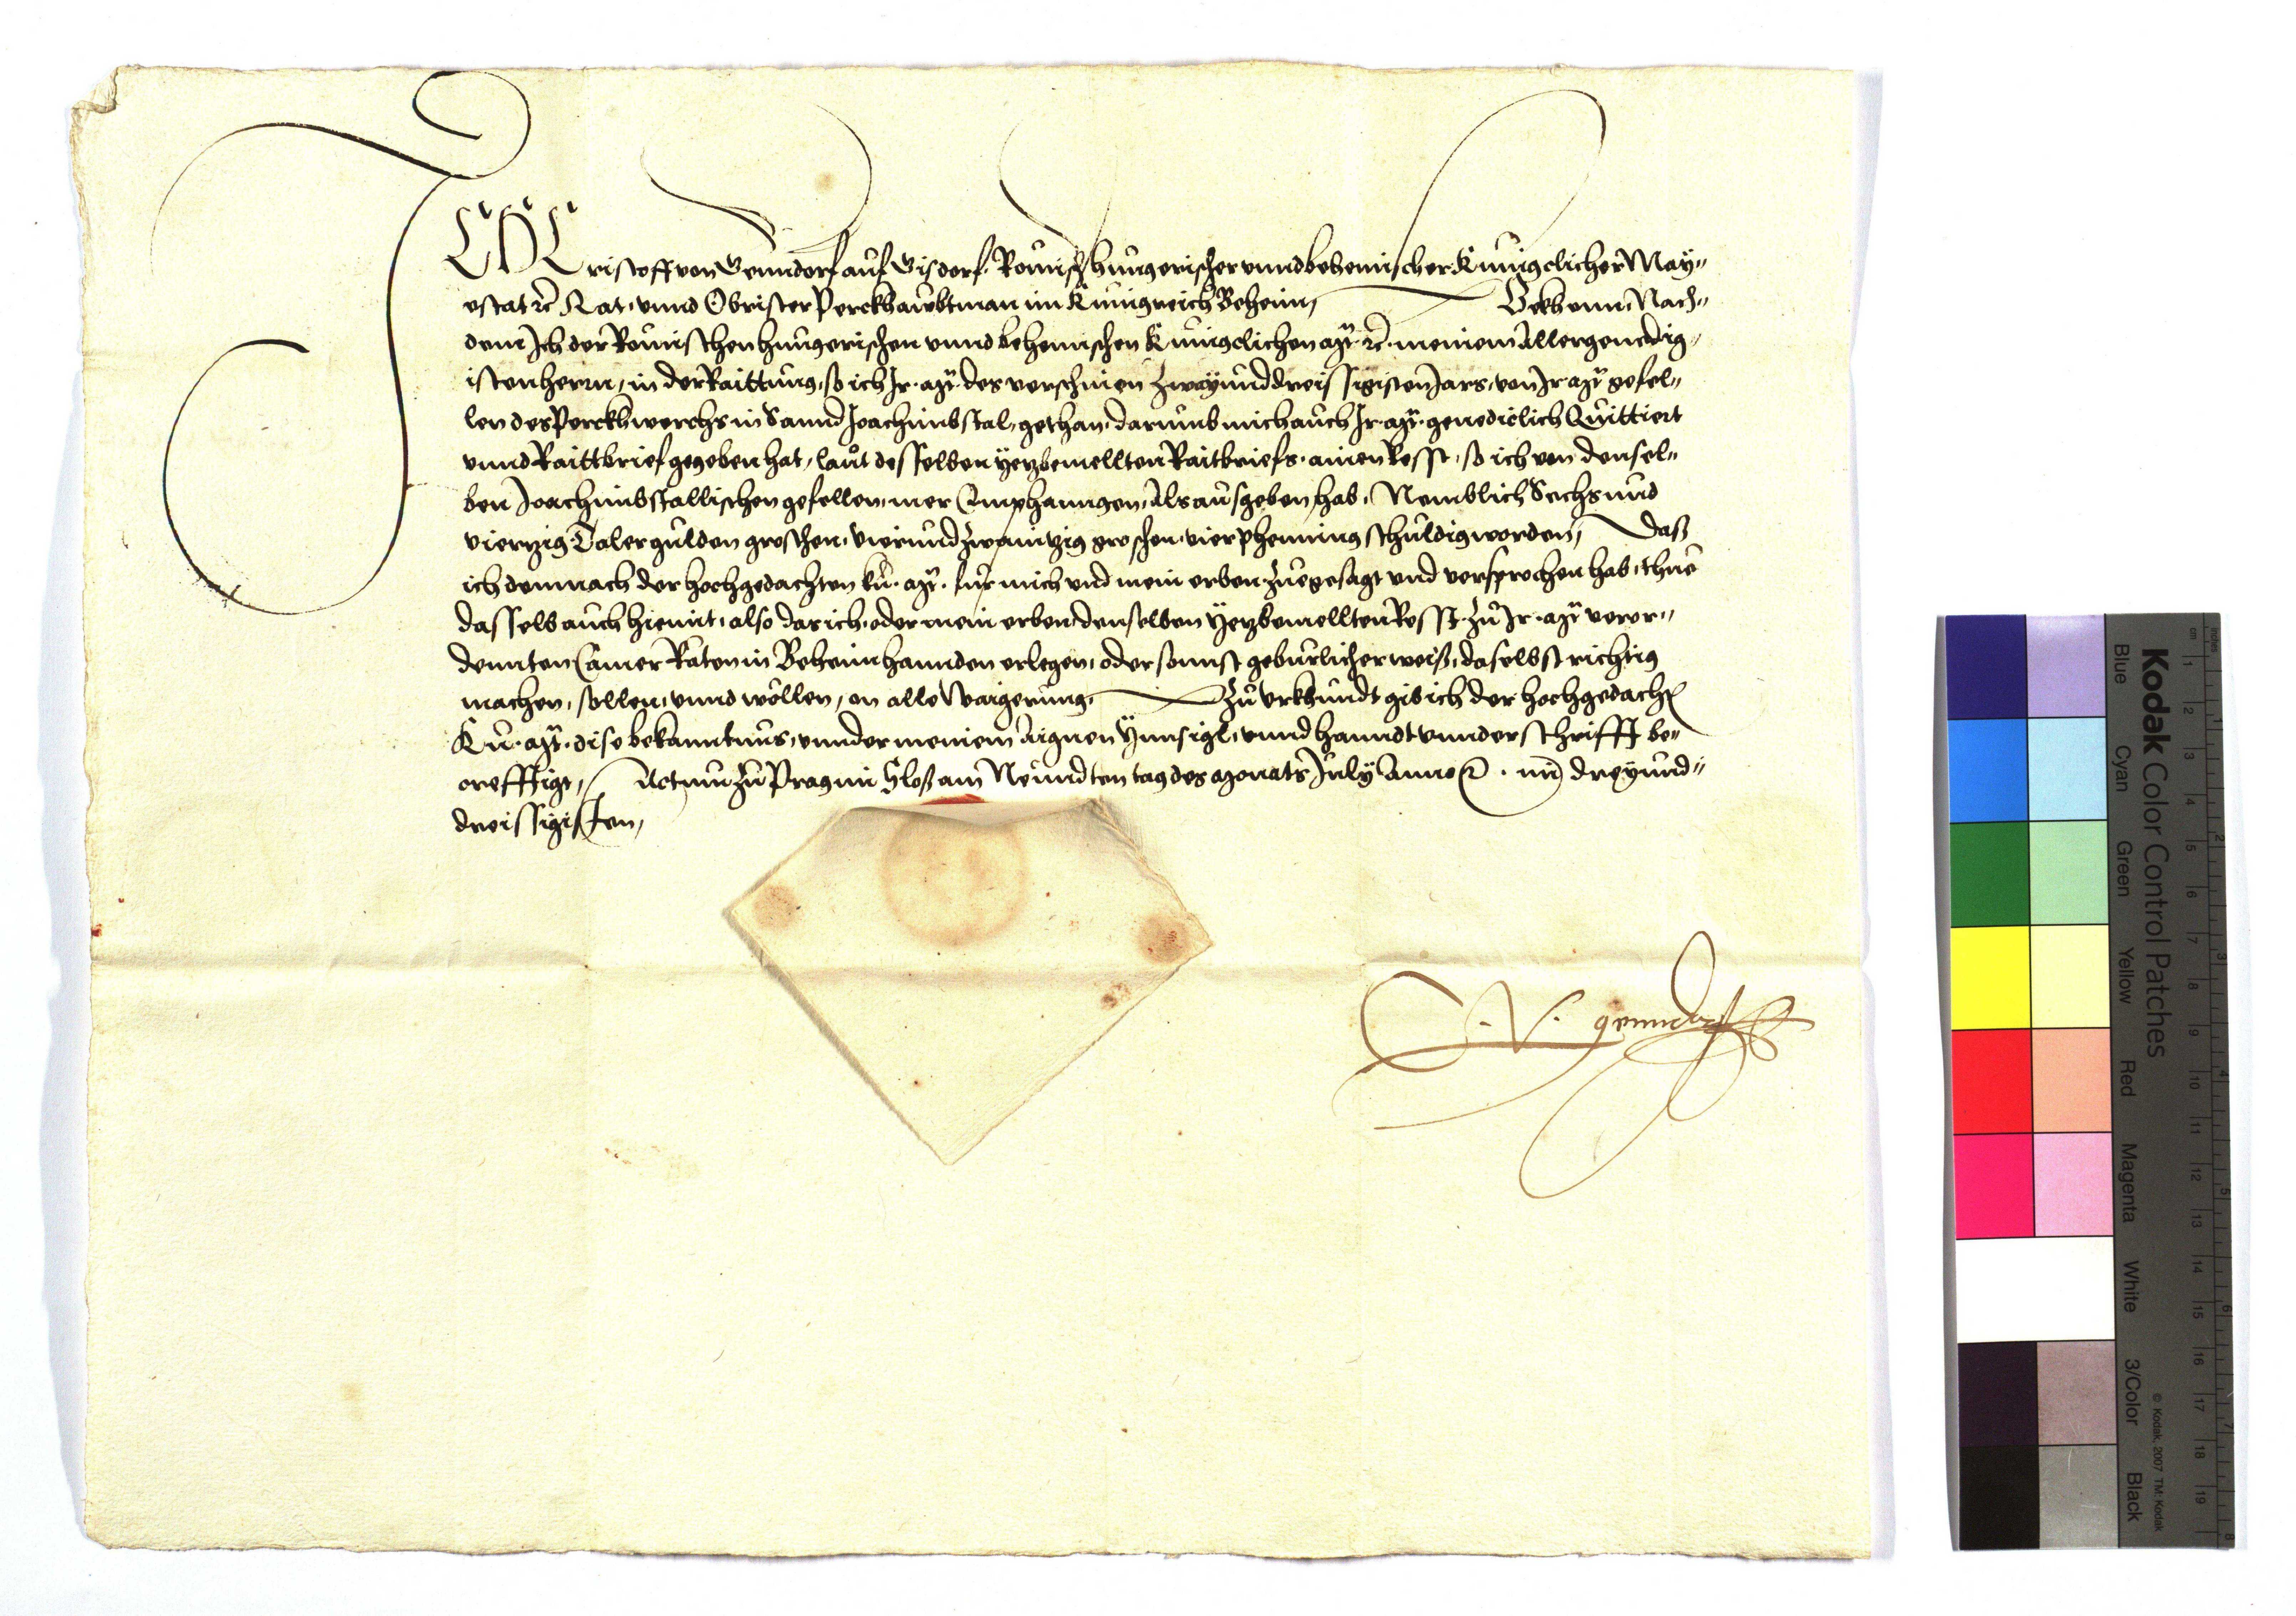 ICH Cristoff von Genndorf auf Gisdorf, Römischer hungerischer vnnd behemischer Kunigclicher May„
estat ꝛc Rat, vnnd Obrister Perckhawbtman im Kunigreich Beheim, Bekhenn, Nach„
dem Ich der Römischen hungerischen vnnd behemischen Kunigclichen Mt. ꝛc. meinem Allergenedig„
isten herrn, in der Raittung, so ich Ir. Mt. des verschinen Zwayunddreissigisten Jars, von Ir Mt gefel„
len des Perckhwerchs in Sannd Joachimbstal, gethan, darumb mich auch Ir. Mt. genediclich Quittiert
vnnd Raittbrief gegeben hat, laut desselben yetzbemellten Raitbriefs, ainen Resst, so ich von densel„
ben Joachimbstallischen gefellen, mer Emphanngen, Als ausgeben hab, Nemblich Sechsund
viertzig Taler gulden groschen, vierundzwaintzig groschen, vier phenning schuldig worden, Das
ich demnach der hochgedachten ku. Mt. fur mich vnd mein erben zuegesagt vnd versprochen hab, thue
dasselb auch hiemit, also das ich, oder mein erben, denselben yetzbemellten Resst zu Ir. Mt veror„
dennten Camer Räten in Beheim hannden erlegen, oder sonnst geburlicher weiß, daselbst richtig
machen, sollen, vnnd wöllen, on alle Waigerung. Zu Vrkhundt gib ich der hochgedacht
Ku. Mt. dise bekanntnus, vnnder meinem aignen Ynnsigl, vnnd hanndtvnnderschrifft be„
creffftigt, Actum zu Prag im Sloß am Neundten tag des Monats July Anno ꝛc. im dreyund„
dreissigisten,
C. V. genndorff
Kodak Color Control Patches
Blue Cyan Green Yellow Red Magenta White 3/Color Black
© Kodak, 2007 TM: Kodak
inches 1 2 3 4 5 6 7 8
cm 1 2 3 4 5 6 7 8 9 10 11 12 13 14 15 16 17 18 19